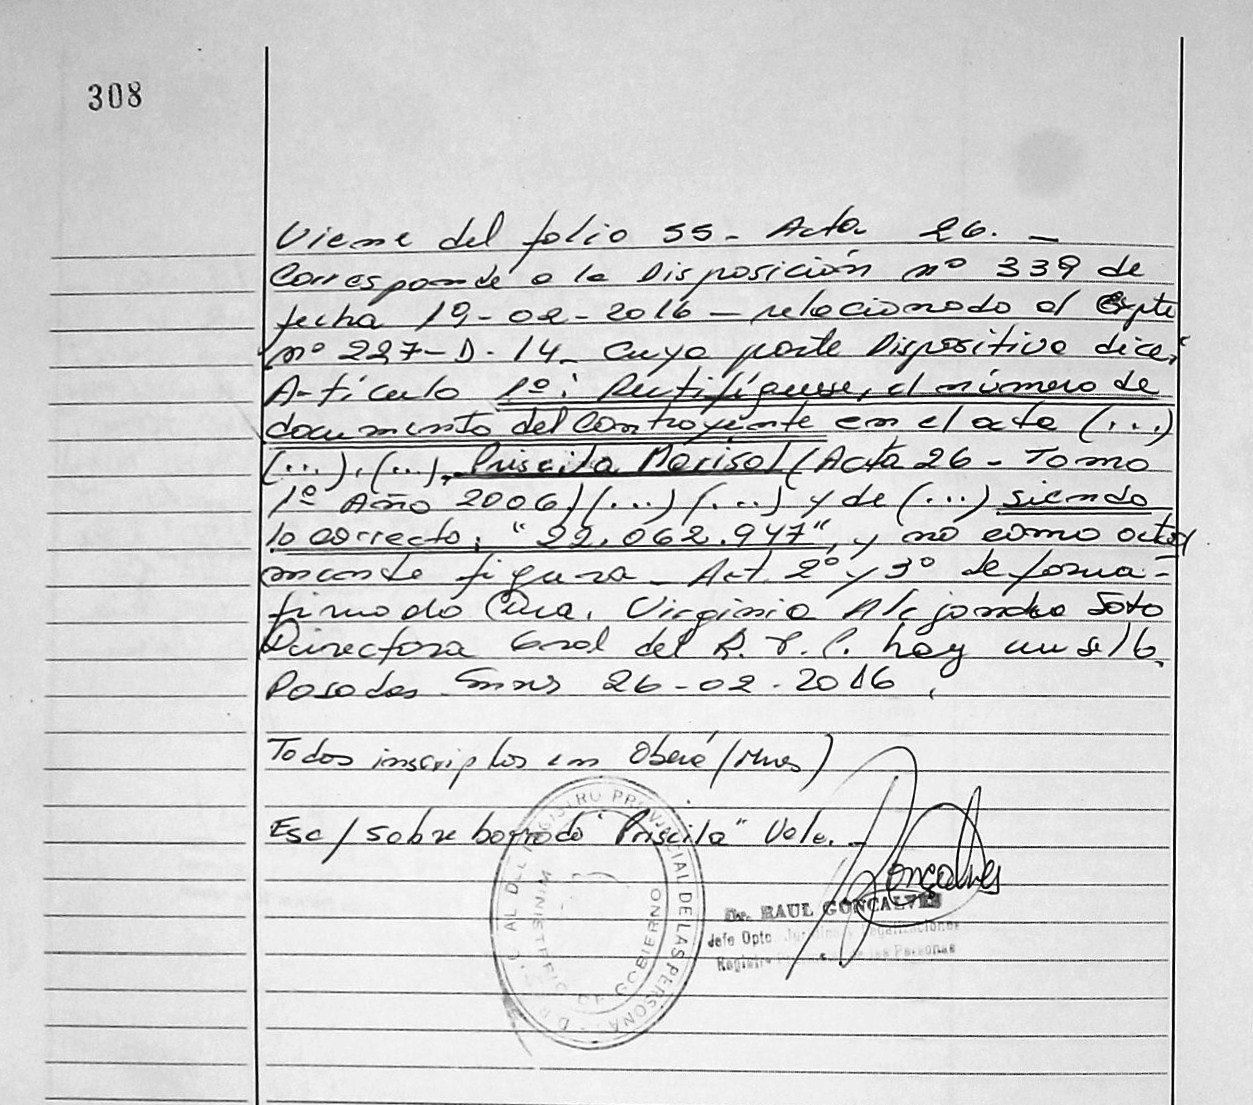 308
Viene del folio 55- Acta 26. -
Corresponde a la Disposición nº 339 de
fecha 19-02-2016 - relacionado al Expte
nº 227-D-14- Cuya parte Dispositiva dice:
Artículo 1º: Rectifíquese, el número de
documento del Contrayente en el acta (...)
(...), (...), Priscila Marisol (Acta 26 - Tomo
1º Año 2006) (...) (...) y de (...) siendo
lo correcto: "22.062.947", y no como actual
mente figura - Art. 2º y 3º de forma-
firmado Cra. Virginia Alejandra Soto
Directora Gral del R.P.P. hay un sello.
Posadas Mnes 26-02-2016.
Todos inscriptos en Oberá (Mnes)
Esc/ sobre borrado "Priscila" Vale. -
Goncalves
Dr. RAUL GONCALVES
Jefe Dpto Legalizaciones
Registro de las Personas
REGISTRO PROVINCIAL DE LAS PERSONAS
MINISTERIO DE GOBIERNO